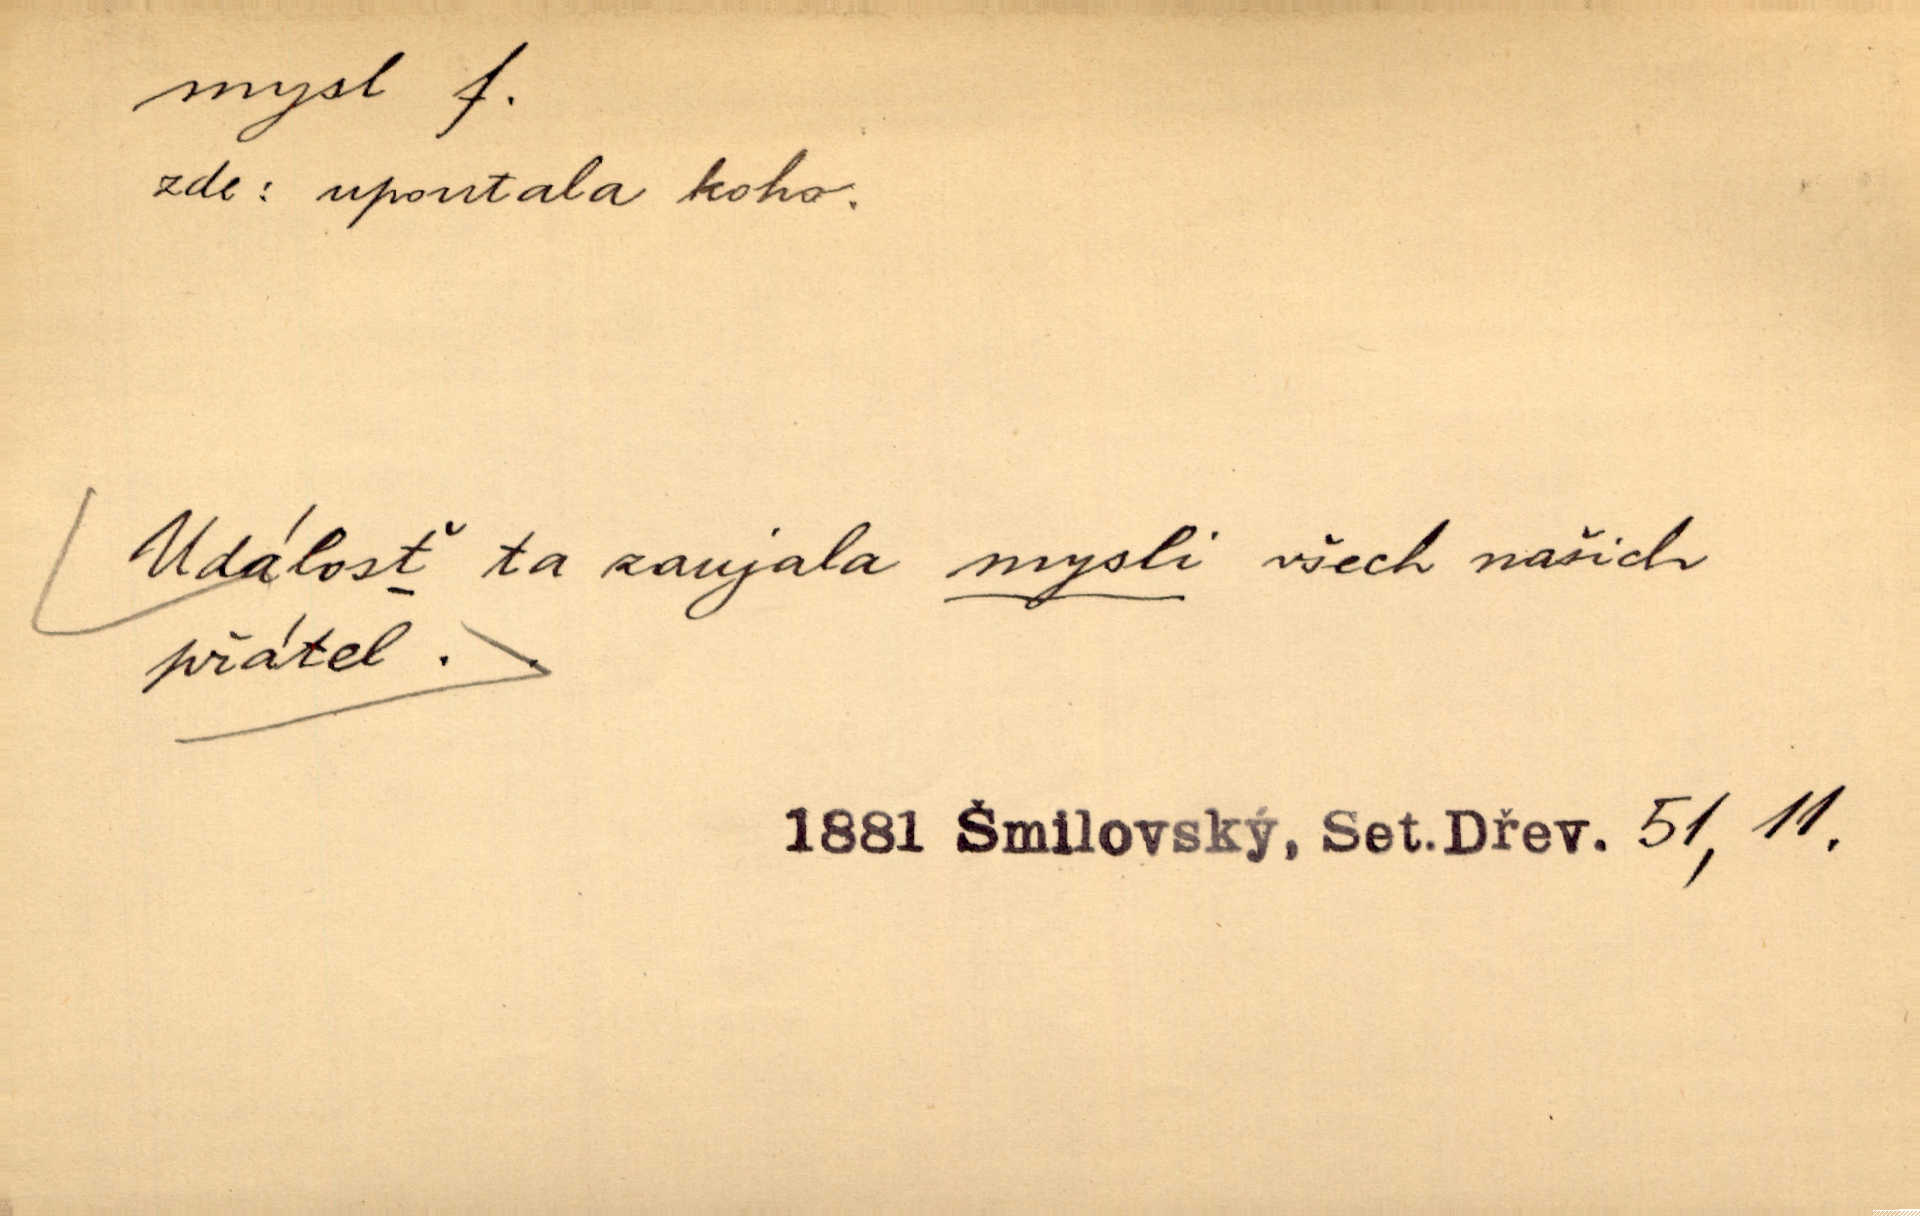 mysl f.
zde: upoutala koho.
Událosť ta zaujala mysli všech našich
přátel . .
1881 Šmilovský, Set.Dřev. 51, 11.